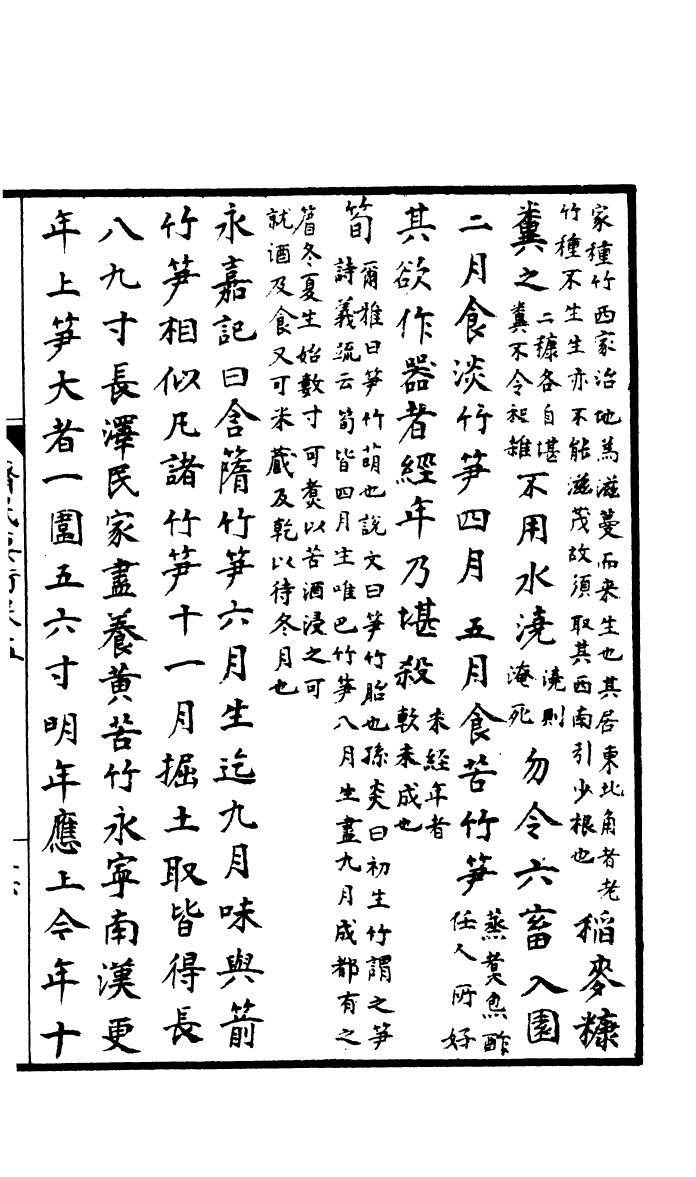 家種竹西家治地為滋蔓而来生也其居東北角者老
竹種不生生亦不能滋茂故須取其西南引少根也
稻麥糠
糞之
二糠各自堪
糞不令和雜
不用水澆
澆則
淹死
勿令六畜入園
二月食淡竹笋四月五月食苦竹笋
蒸煮炰酢
任人所好
其欲作器者經年乃堪殺
未經年者
軟未成也
筍
爾雅曰笋竹萌也說文曰笋竹胎也孫炎曰初生竹謂之笋
詩義疏云筍皆四月生唯巴竹笋八月生盡九月成都有之
冬夏生始數寸可煮以苦酒浸之可
就酒及食又可米藏及乾以待冬月也
永嘉記曰含隋竹笋六月生迄九月味與箭
竹笋相似凡諸竹笋十一月掘土取皆得長
八九寸長澤民家盡養黃苦竹永寧南漢更
年上笋大者一圍五六寸明年應上今年十